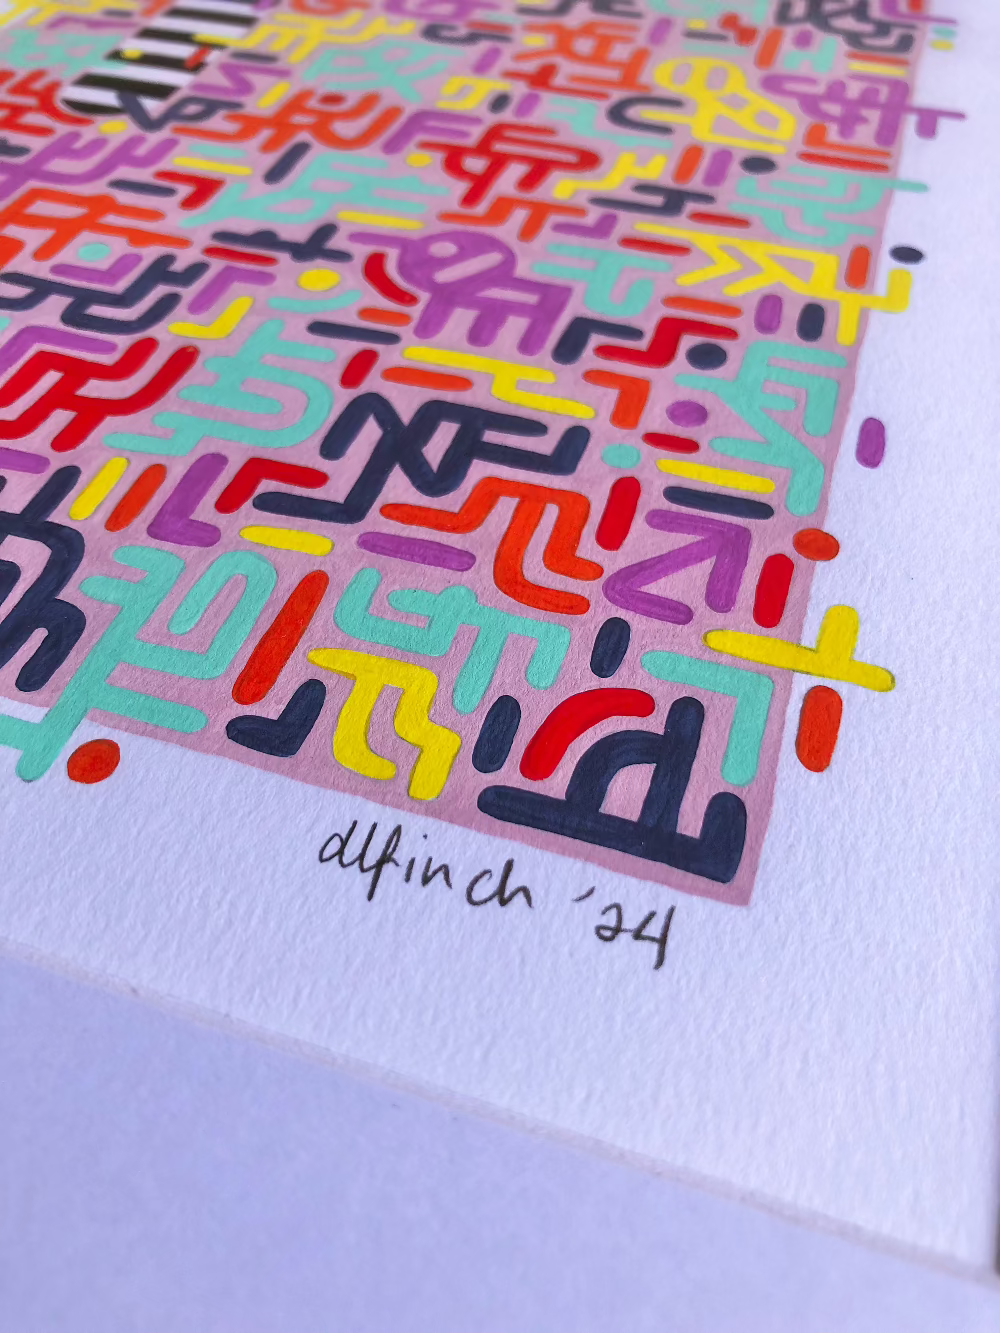 dlfinch '24